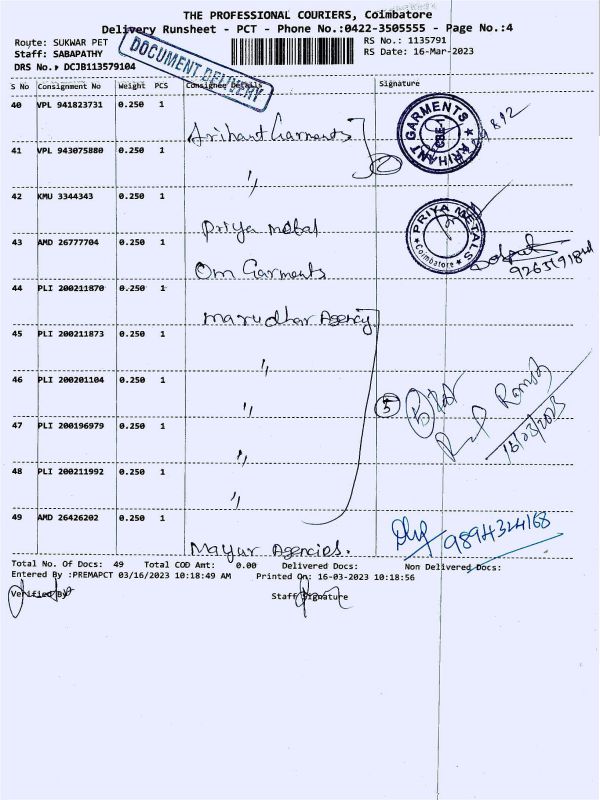 THE PROFESSIONAL COURIERS, Coimbatore
Delivery Runsheet - PCT - Phone No.:0422-3505555 - Page No.:4
Route: SUKWAR PET
RS No.: 1135791
Staff: SABAPATHY
RS Date: 16-Mar-2023
DRS No.: DCJB113579104
DOCUMENT DELIVERY
S No Consignment No Weight PCS Consignee Details Signature
40 VPL 941823731 0.250 1
Arihant Garments
ARIHANT GARMENTS
CBE-1
41 VPL 943075880 0.250 1
"
42 KMU 3344343 0.250 1
Priya metal
PRIYA METALS
Coimbatore
43 AMD 26777704 0.250 1
Om Garments
44 PLI 200211870 0.250 1
marudhar Agency
45 PLI 200211873 0.250 1
"
46 PLI 200201104 0.250 1
"
5
47 PLI 200196979 0.250 1
"
16/03/2023
48 PLI 200211992 0.250 1
"
49 AMD 26426202 0.250 1
Mayur Agencies.
9894324168
Total No. Of Docs: 49 Total COD Amt: 0.00 Delivered Docs: Non Delivered Docs:
Entered By :PREMAPCT 03/16/2023 10:18:49 AM Printed On: 16-03-2023 10:18:56
Verified By
Staff Signature